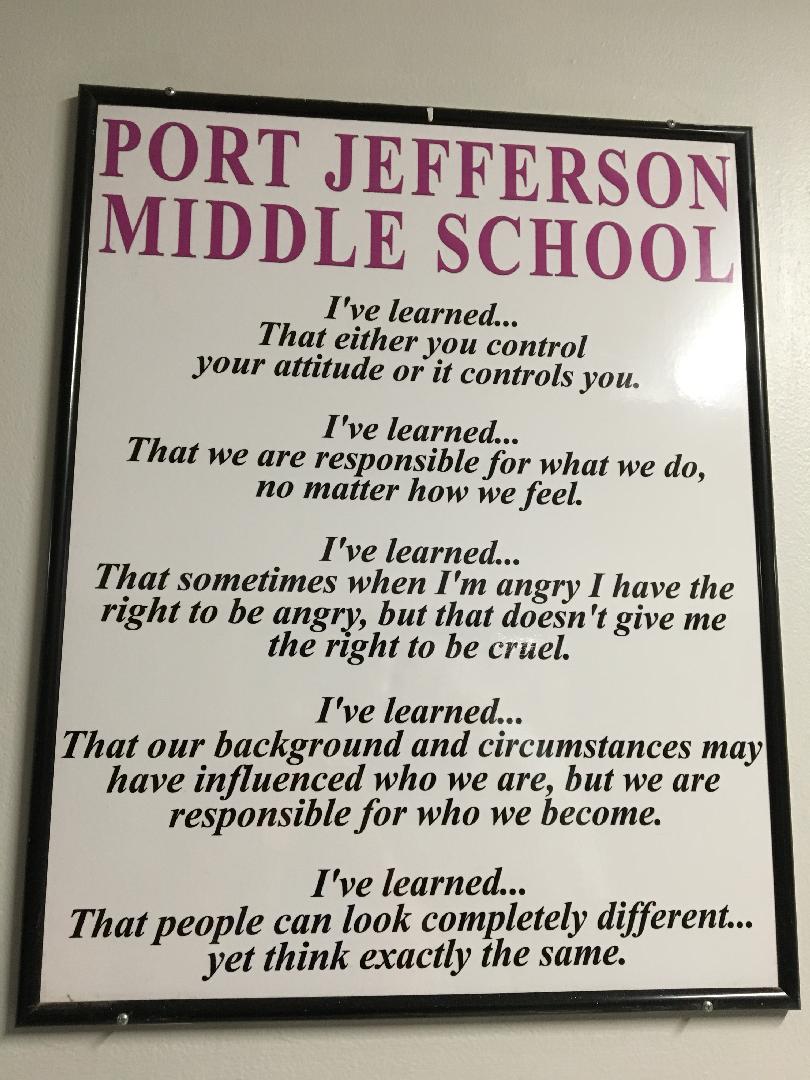 PORT JEFFERSON
MIDDLE SCHOOL
I've learned...
That either you control
your attitude or it controls you.
I've learned...
That we are responsible for what we do,
no matter how we feel.
I've learned...
That sometimes when I'm angry I have the
right to be angry, but that doesn't give me
the right to be cruel.
I've learned...
That our background and circumstances may
have influenced who we are, but we are
responsible for who we become.
I've learned...
That people can look completely different...
yet think exactly the same.